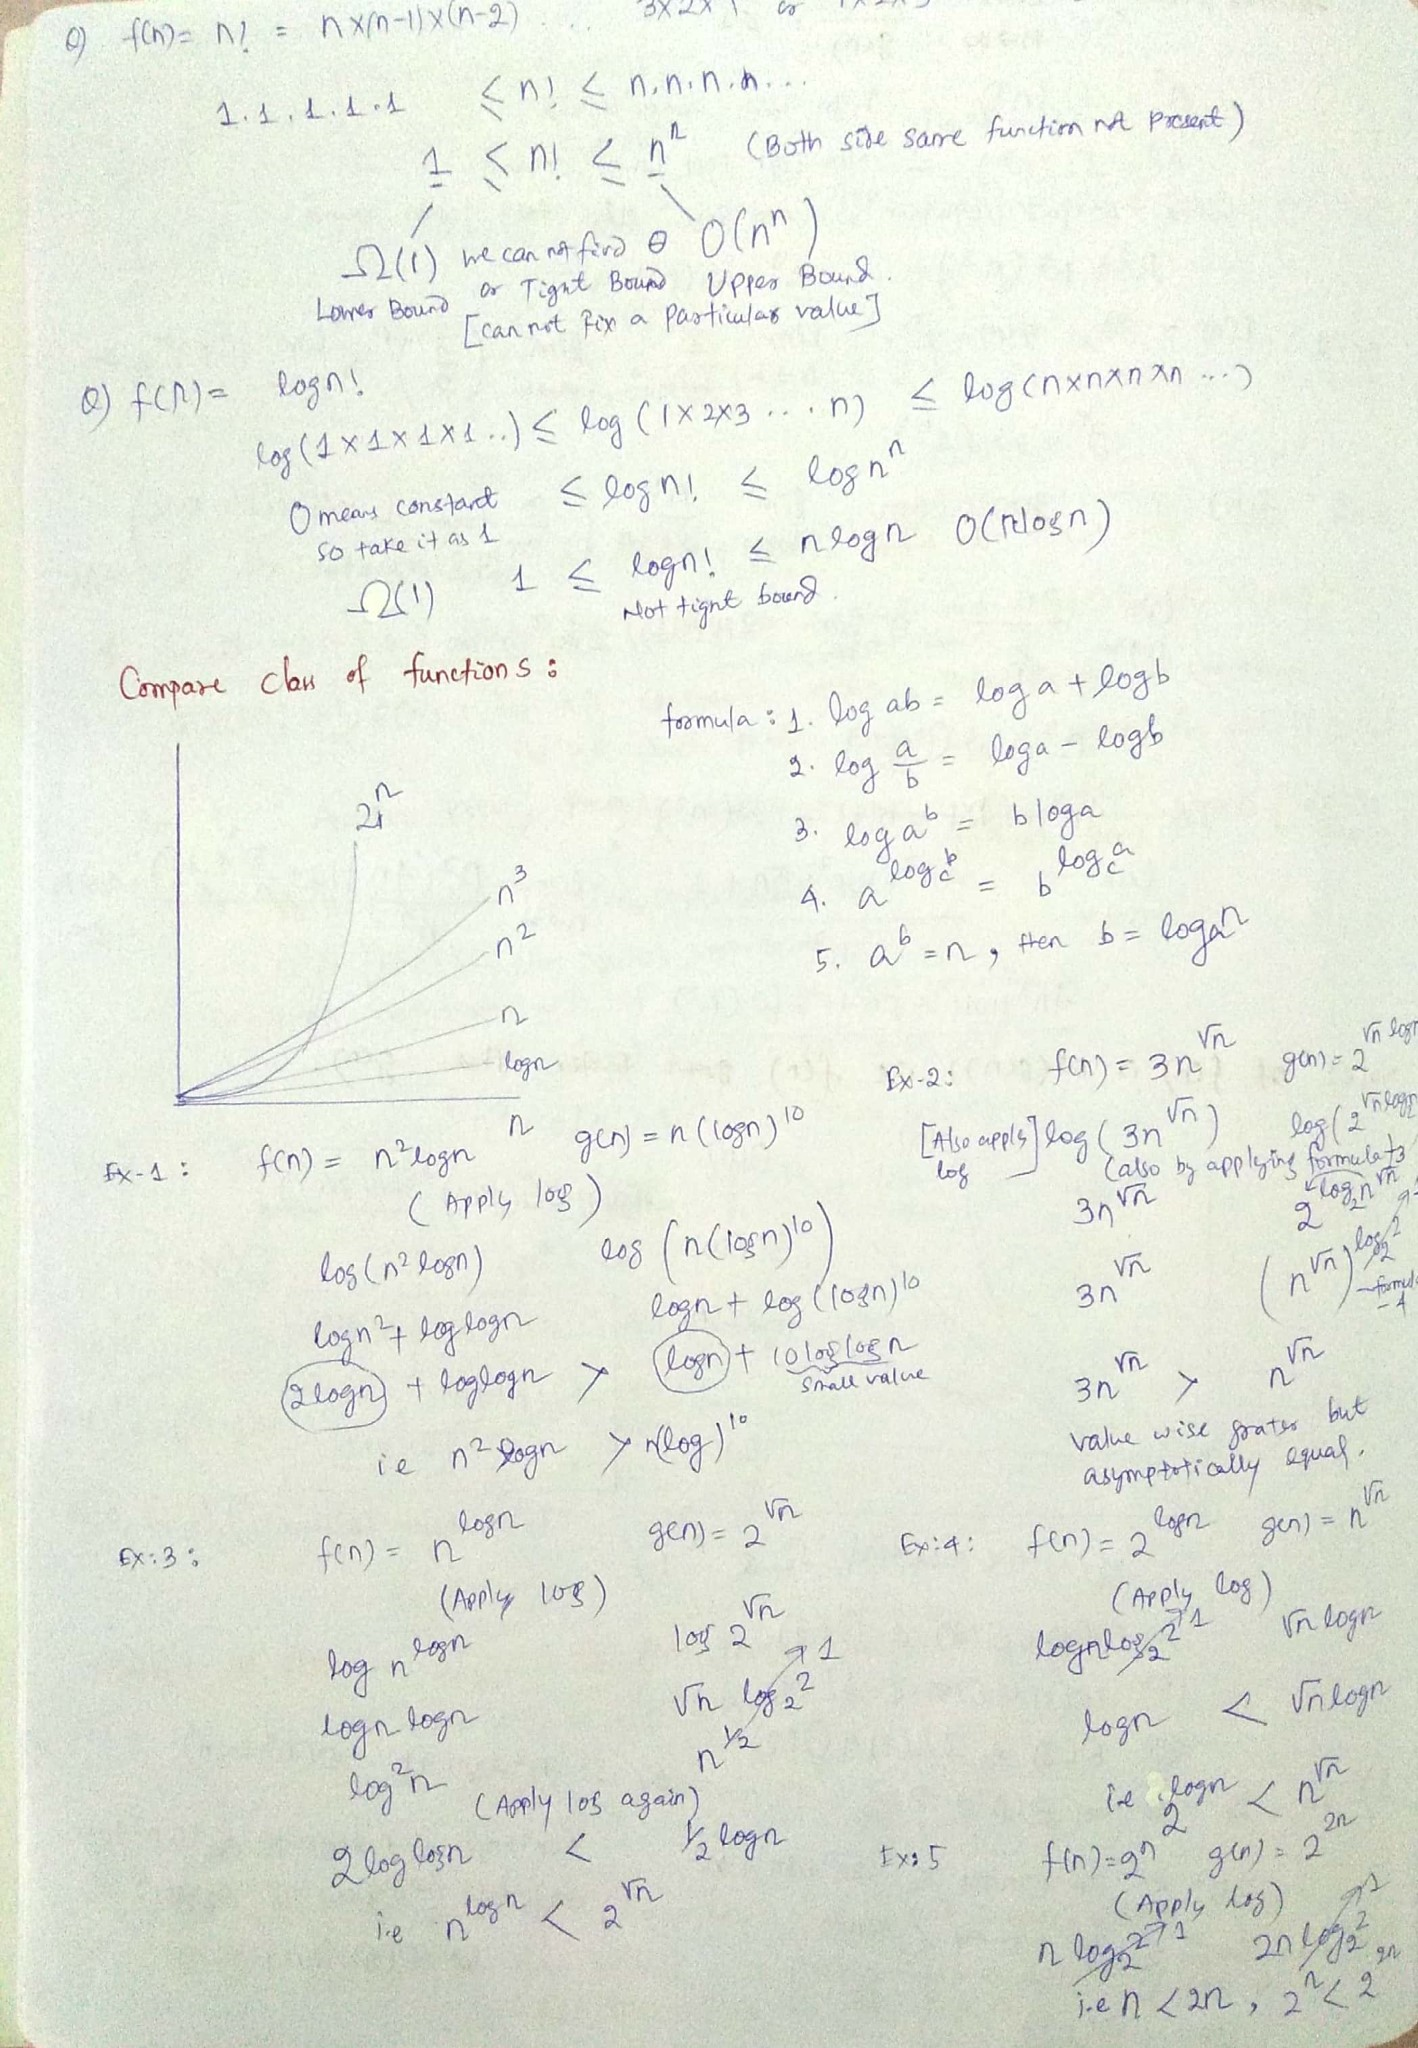 Q) f(n)= n! = n×(n-1)×(n-2) ... 3×2×1 or 1×2×3
1.1.1.1.1 ≤ n! ≤ n.n.n.n...
1 ≤ n! ≤ nⁿ (Both side same function not present)
Ω(1) we can not find θ O(nⁿ)
Lower Bound or Tight Bound Upper Bound.
[can not fix a particular value]
Q) f(n)= logn!
log(1×1×1×1..) ≤ log(1×2×3...n) ≤ log(n×n×n×n...)
0 means constant ≤ logn! ≤ lognⁿ
so take it as 1
Ω(1) 1 ≤ logn! ≤ nlogn O(nlogn)
Not tight bound.
Compare class of functions:
formula: 1. log ab = log a + logb
2. log a/b = loga - logb
3. log a^b = bloga
4. a^(log_c b) = b^(log_c a)
5. a^b = n, then b = log_a n
2ⁿ
n³
n²
n
logn
n
Ex-1: f(n) = n²logn g(n) = n(logn)¹⁰
(Apply log)
log(n²logn) log(n(logn)¹⁰)
logn² + loglogn logn + log(logn)¹⁰
2logn + loglogn > logn + 10loglogn
small value
i.e n²logn > n(log)¹⁰
Ex-2: f(n) = 3n^√n g(n) = 2^(√n logn)
[Also apply log] log(3n^√n) log(2^(√n log₂n)
(also by applying formula 3
3n^√n 2^(log₂n^√n)
3n^√n (n^√n)^(log₂2) - formula
-4
3n^√n > n^√n
value wise grater but
asymptotically equal.
Ex:3: f(n) = n^logn g(n) = 2^√n
(Apply log)
log n^logn log 2^√n
logn logn √n log₂2 → 1
log²n n^½
(Apply log again)
2loglogn < ½logn
i.e n^logn < 2^√n
Ex:4: f(n) = 2^logn g(n) = n^√n
(Apply log)
lognlog₂2 → 1 √nlogn
logn < √nlogn
i.e 2^logn < n^√n
Ex:5 f(n)=2ⁿ g(n) = 2²ⁿ
(Apply log)
n log₂2 → 1 2n log₂2 → 1
i.e n < 2n, 2ⁿ < 2²ⁿ